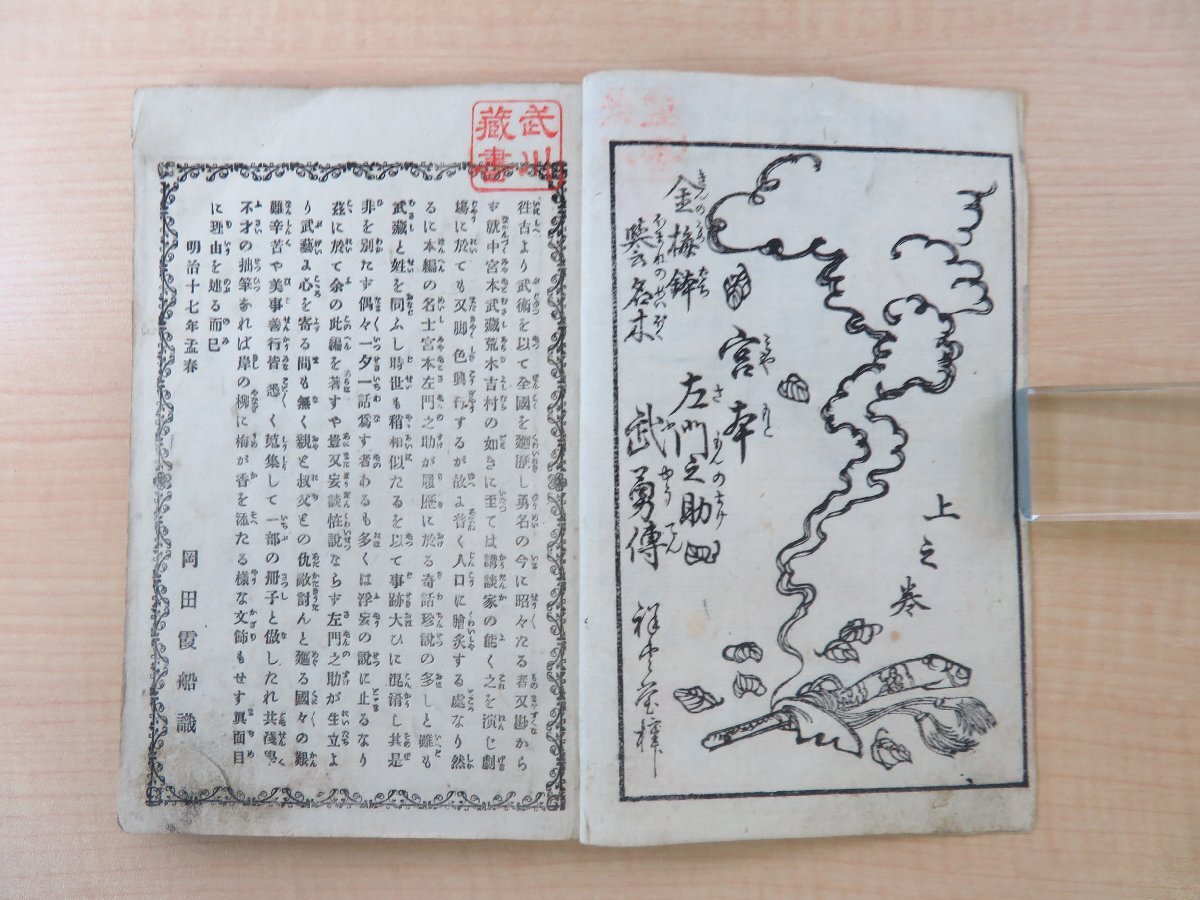 上之巻
金梅鉢
誉名木
宮本
左門之助
武勇傳
武州
藏書
徃古より武術を以て全國を廻歴し勇名の今に昭々たる者又尠から
ず就中宮本武藏荒木吉村の如きに至ては講談家の能く之を演じ劇
塲に於ても又脚色興行するが故に普く人口に膾炙する處なり然
るに本編の名士宮本左門之助が履歴に於る奇話珍説の多しと雖も
武藏と姓を同ふし時世も稍相似たるを以て事跡大ひに混淆し其是
非を別たず偶々一夕一話爲す者あるも多くは浮妄の説に止るなり
茲に於て余の此編を著すや豈又妄談怪説ならず左門之助が生立よ
り武藝に心を寄る間も無く親と叔父との仇敵討んと廻る國々の艱
難辛苦や美事善行皆悉く蒐集して一部の冊子と倣したれ共淺學
不才の拙筆なれば岸の柳に梅が香を添たる様な文飾もせす眞面目
に理由を述る而已
明治十七年孟春
岡田霞船識